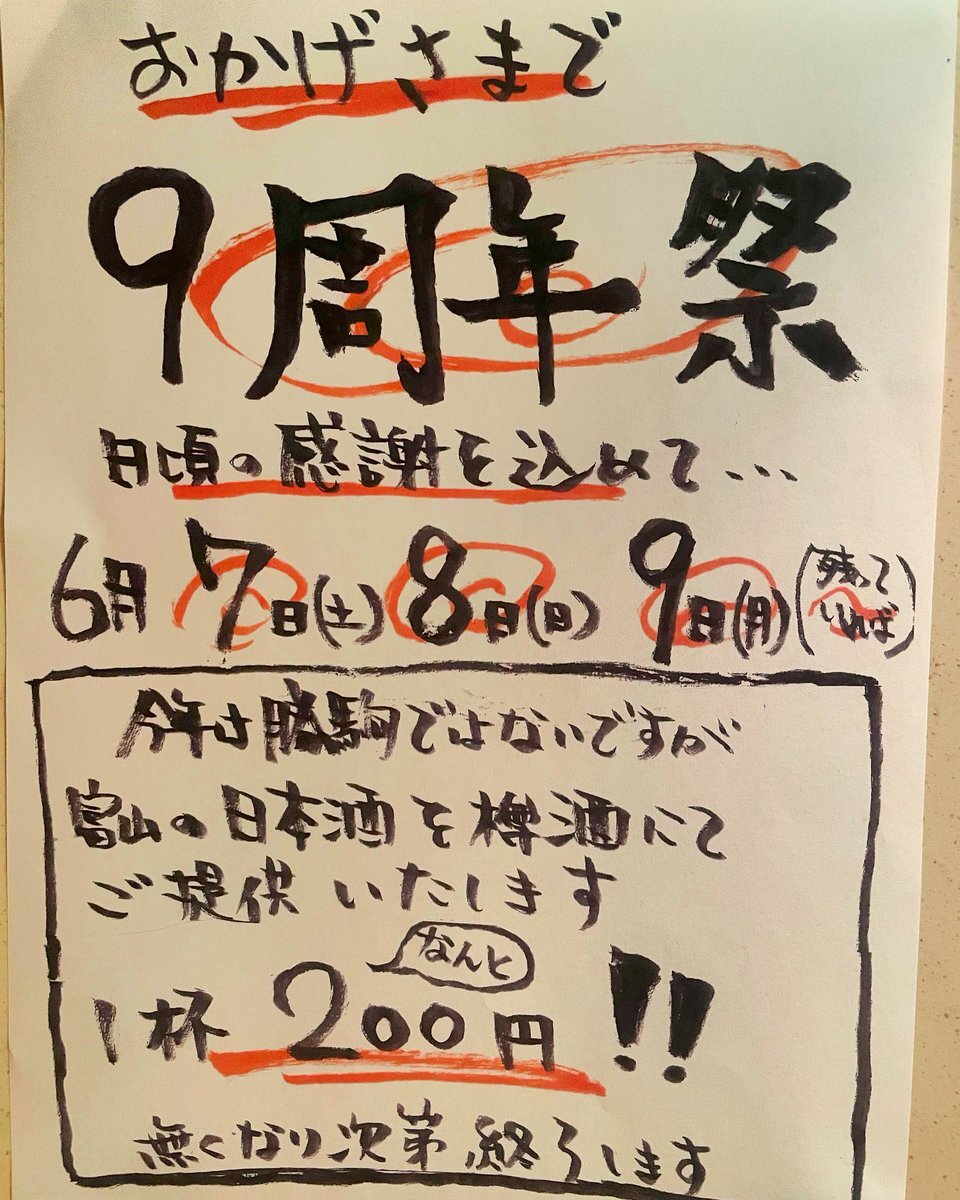 おかげさまで
9周年祭
日頃の感謝を込めて...
6月7日(土)8日(日)9日(月)(残っていれば)
今年は勝駒ではないですが
富山の日本酒を樽酒にて
ご提供いたします
なんと
1杯200円!!
無くなり次第終了します